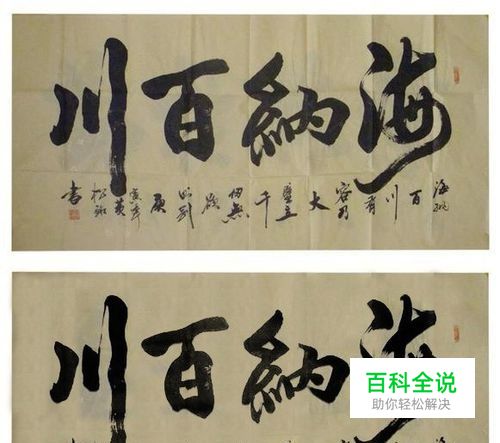 海納百川
海納百川有容乃大壁立千仞無欲則剛庚寅年黃松書
海納百川
百科全说
助你轻松解决